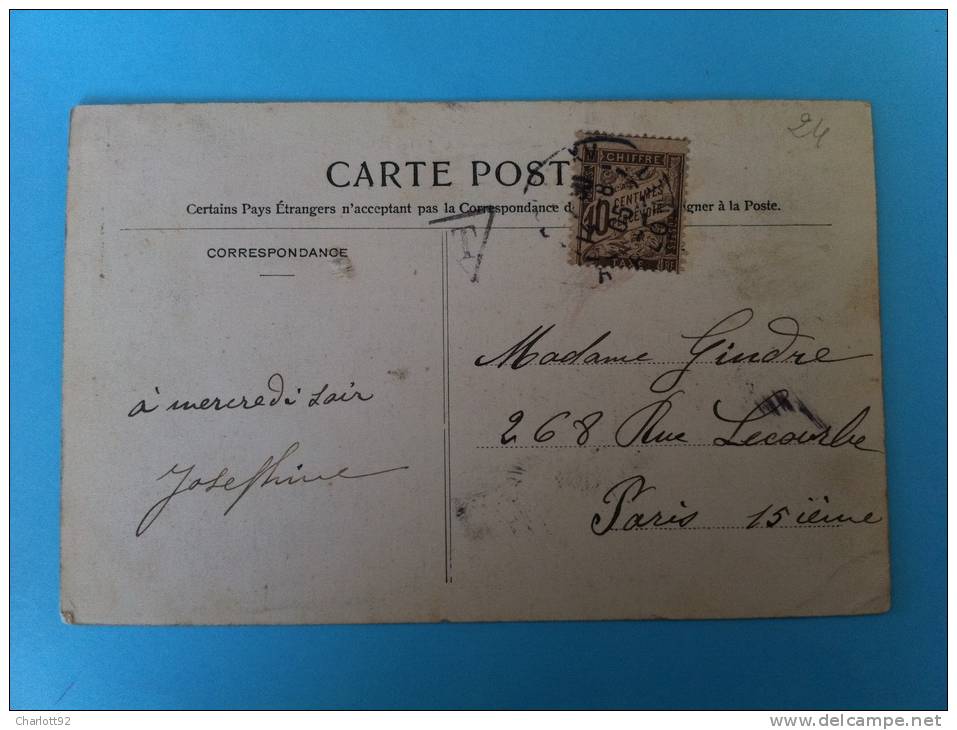 24
CARTE POST
Certains Pays Étrangers n'acceptant pas la Correspondance d gner à la Poste.
CHIFFRE
CENTIMES
10
TAXE
T
CORRESPONDANCE
à mercredi soir
Josephine
Madame Gindre
268 Rue Lecourbe
Paris 15ième
Charlott92
www.delcampe.net